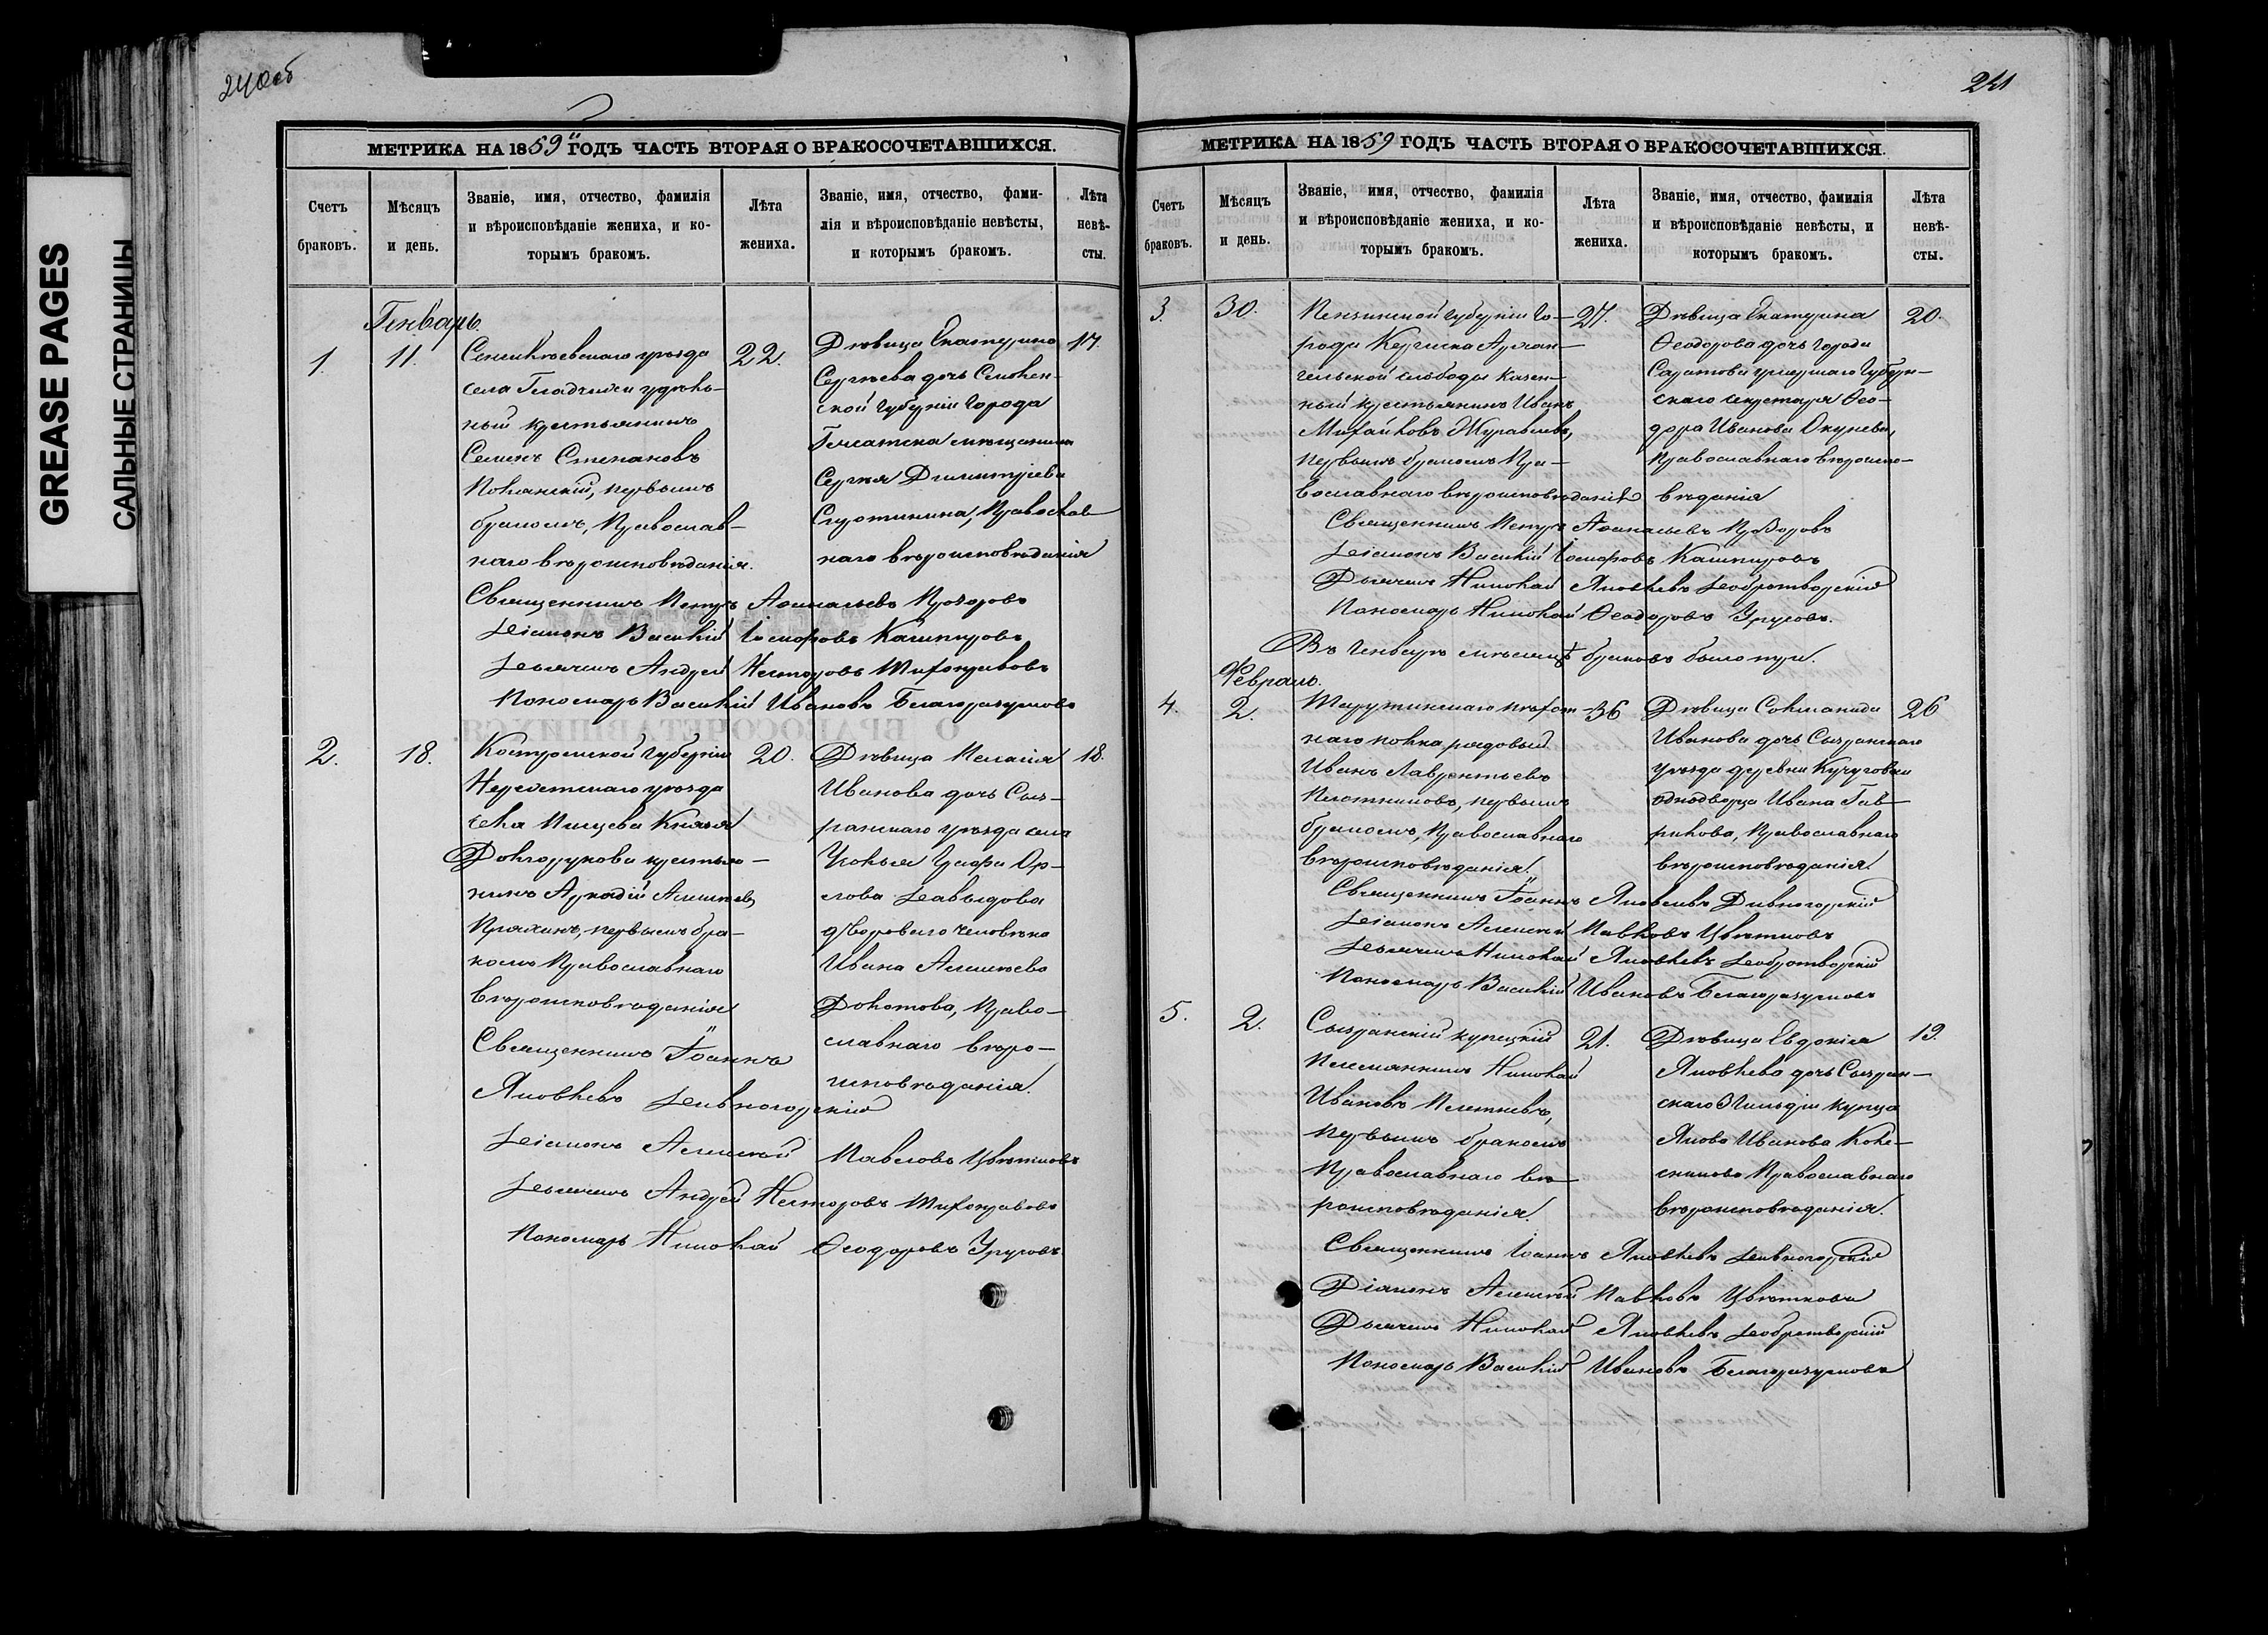 240об
GREASE PAGES
САЛЬНЫЕ СТРАНИЦЫ
МЕТРИКА НА 1859й ГОДЪ ЧАСТЬ ВТОРАЯ О БРАКОСОЧЕТАВШИХСЯ.
Счетъ браковъ.
Мѣсяцъ и день.
Званіе, имя, отчество, фамилія
и вѣроисповѣданіе жениха, и ко-
торымъ бракомъ.
Лѣта жениха.
Званіе, имя, отчество, фами-
лія и вѣроисповѣданіе невѣсты,
и которымъ бракомъ.
Лѣта невѣ-
сты.
Генварь.
1.
11.
Сенгилѣевскаго уѣзда
села Гладчихи удѣль-
ный крестьянинъ
Семенъ Степановъ
первымъ
бракомъ, Православ-
наго вѣроисповѣданія.
22.
Дѣвица Екатерина
Сергѣева дочь Смолен-
ской Губерніи города
Гжатска мѣщанина
Сергѣя Димитріева
Сиротинина, Православ-
наго вѣроисповѣданія
17.
Священникъ Петръ Аѳанасьевъ Прозоровъ
Діаконъ Василій Іосифовъ Кашпировъ
Дьячекъ Андрей Несторовъ Тихонравовъ
Пономарь Василій Ивановъ Благоразумовъ
2.
18.
Костромской Губерніи
Нерехтскаго уѣзда
села Писцева Князя
Долгорукова крестья-
нинъ Аркадій Алексѣевъ
Пряхинъ, первымъ бра-
комъ Православнаго
вѣроисповѣданія
20.
Дѣвица Пелагія
Иванова дочь Сыз-
ранскаго уѣзда села
Усолья Графа Ор-
лова Давыдова
двороваго человѣка
Ивана Алексѣева
Долотова, Право-
славнаго вѣро-
исповѣданія.
18.
Священникъ Іоаннъ
Яковлевъ Дивногорскій
Діаконъ Алексѣй Павловъ Цвѣтковъ
Дьячекъ Андрей Несторовъ Тихонравовъ
Пономарь Николай Ѳеодоровъ Урусовъ.
241
МЕТРИКА НА 1859 ГОДЪ ЧАСТЬ ВТОРАЯ О БРАКОСОЧЕТАВШИХСЯ.
Счетъ браковъ.
Мѣсяцъ и день.
Званіе, имя, отчество, фамилія
и вѣроисповѣданіе жениха, и ко-
торымъ бракомъ.
Лѣта жениха.
Званіе, имя, отчество, фамилія
и вѣроисповѣданіе невѣсты, и
которымъ бракомъ.
Лѣта невѣ-
сты.
3.
30.
Пензинской губерніи го-
рода Керенска Архан-
гельской слободы казен-
ный крестьянинъ Иванъ
Михайловъ Журавлевъ,
первымъ бракомъ Пра-
вославнаго вѣроисповѣданія
27.
Дѣвица Екатерина
Ѳеодорова дочь города
Саратова умершаго Губерн-
скаго секретаря Ѳео-
дора Иванова Окунева,
Православнаго вѣроиспо-
вѣданія
20.
Священникъ Петръ Аѳанасьевъ Прозоровъ
Діаконъ Василій Іосифовъ Кашпировъ
Дьячекъ Николай Яковлевъ Добротворскій
Пономарь Николай Ѳеодоровъ Урусовъ.
Въ Генварѣ мѣсяцѣ браковъ было три.
Февраль.
4.
2.
Тарутинскаго пѣхот-
наго полка рядовый
Иванъ Лаврентьевъ
Плотниковъ, первымъ
бракомъ, Православнаго
вѣроисповѣданія.
36
Дѣвица Соломонида
Иванова дочь Сызранскаго
уѣзда деревни Кучуговки
однодворца Ивана Гав-
рилова, Православнаго
вѣроисповѣданія
26
Священникъ Іоаннъ Яковлевъ Дивногорскій
Діаконъ Алексѣй Павловъ Цвѣтковъ
Дьячекъ Николай Яковлевъ Добротворскій
Пономарь Василій Ивановъ Благоразумовъ
5.
2.
Сызранскій купецкій
племянникъ Николай
Ивановъ Плетневъ,
первымъ бракомъ
Православнаго вѣ-
роисповѣданія.
21.
Дѣвица Евдокія
Яковлева дочь Сызран-
скаго 3 гильдіи купца
Якова Иванова Коле-
сникова Православнаго
вѣроисповѣданія.
19.
Священникъ Іоаннъ Яковлевъ Дивногорскій
Діаконъ Алексѣй Павловъ Цвѣтковъ
Дьячекъ Николай Яковлевъ Добротворскій
Пономарь Василій Ивановъ Благоразумовъ